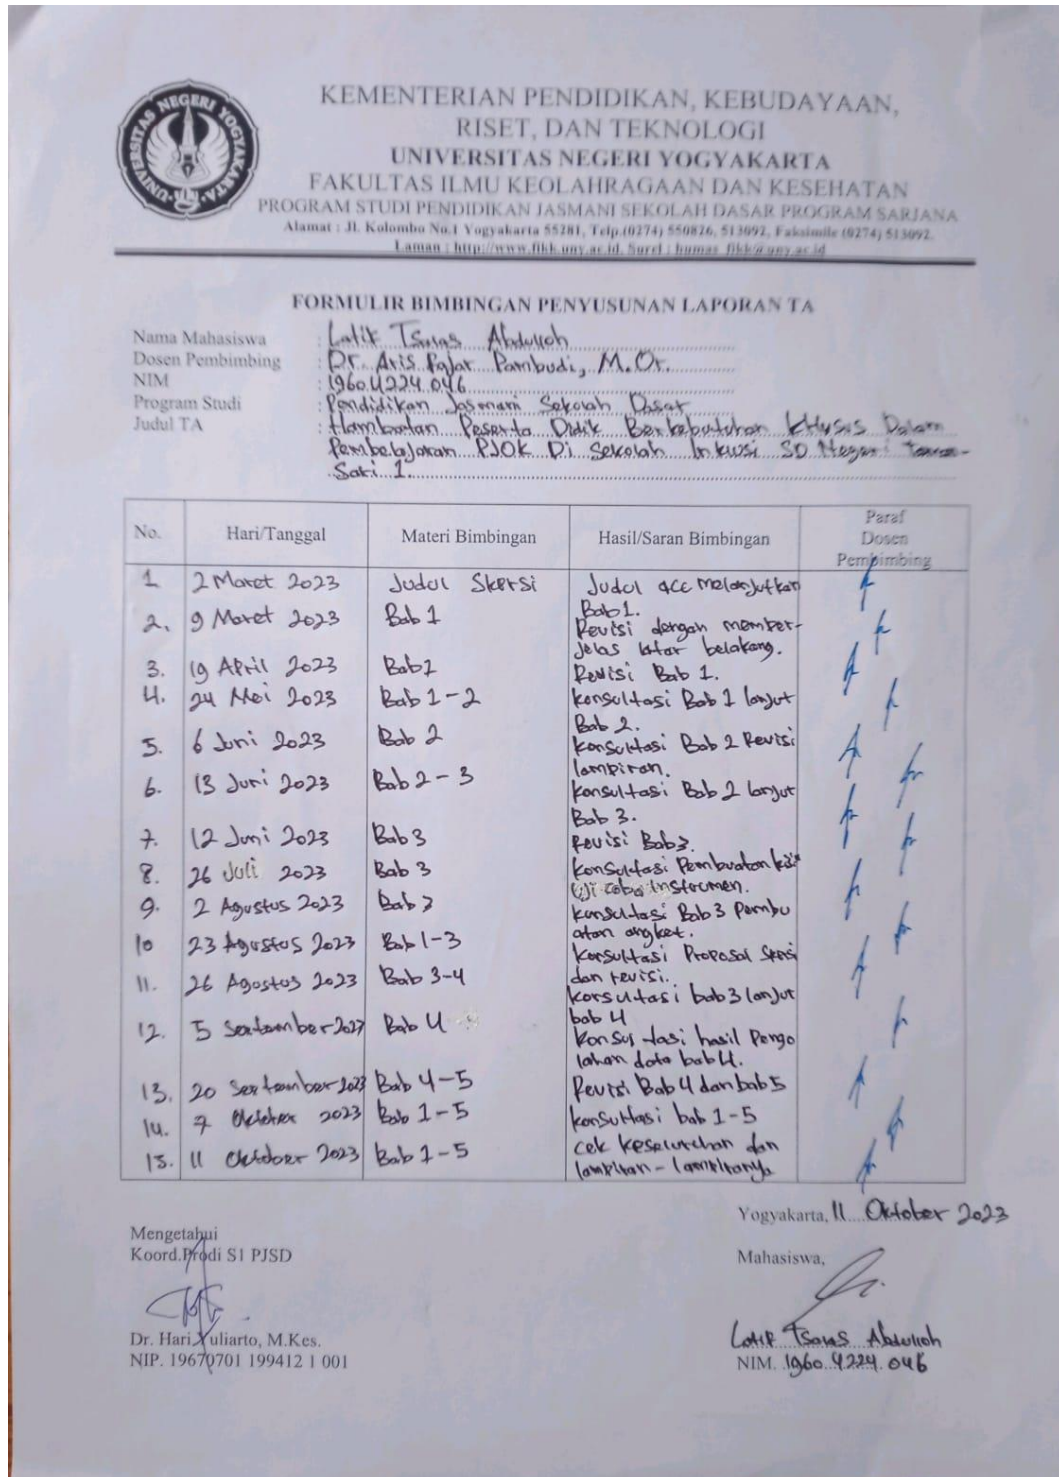 UNIVERSITAS NEGERI YOGYAKARTA
KEMENTERIAN PENDIDIKAN, KEBUDAYAAN,
RISET, DAN TEKNOLOGI
UNIVERSITAS NEGERI YOGYAKARTA
FAKULTAS ILMU KEOLAHRAGAAN DAN KESEHATAN
PROGRAM STUDI PENDIDIKAN JASMANI SEKOLAH DASAR PROGRAM SARJANA
Alamat : Jl. Kolombo No.1 Yogyakarta 55281, Telp.(0274) 550826, 513092, Faksimile (0274) 513092.
Laman : http://www.fikk.uny.ac.id. Surel : humas_fikk@uny.ac.id
FORMULIR BIMBINGAN PENYUSUNAN LAPORAN TA
Nama Mahasiswa : Latif Tsaras Abdulloh
Dosen Pembimbing : Dr. Aris Fajar Pambudi, M.Or.
NIM : 1960.4224.046
Program Studi : Pendidikan Jasmani Sekolah Dasar
Judul TA : Hambatan Peserta Didik Berkebutuhan Khusus Dalam
Pembelajaran PJOK Di Sekolah Inklusi SD Negeri
Sari 1.
No. Hari/Tanggal Materi Bimbingan Hasil/Saran Bimbingan Paraf Dosen Pembimbing
1 2 Maret 2023 Judul Skersi Judul acc melanjutkan
Bab 1.
2. 9 Maret 2023 Bab 1 Revisi dengan member-
jelas latar belakang.
3. 19 April 2023 Bab 1 Revisi Bab 1.
4. 24 Mei 2023 Bab 1-2 konsultasi Bab 1 lanjut
Bab 2.
5. 6 Juni 2023 Bab 2 konsultasi Bab 2 Revisi
lampiran.
6. 13 Juni 2023 Bab 2-3 konsultasi Bab 2 lanjut
Bab 3.
7. 12 Juni 2023 Bab 3 Revisi Bab 3.
8. 26 Juli 2023 Bab 3 konsultasi Pembuatan kisi"
Uji coba instrumen.
9. 2 Agustus 2023 Bab 3 konsultasi Bab 3 Pembu
atan angket.
10 23 Agustus 2023 Bab 1-3 konsultasi Proposal
dan revisi.
11. 26 Agustus 2023 Bab 3-4 konsultasi bab 3 lanjut
bab 4
12. 5 September 2023 Bab 4 konsultasi hasil Pengo
lahan data bab 4.
13. 20 September 2023 Bab 4-5 Revisi Bab 4 dan bab 5
14. 7 Oktober 2023 Bab 1-5 konsultasi bab 1-5
15. 11 Oktober 2023 Bab 1-5 cek keseluruhan dan
lampiran-lampiranya
Yogyakarta, 11 Oktober 2023
Mengetahui
Koord.Prodi S1 PJSD
Mahasiswa,
Dr. Hari Yuliarto, M.Kes.
NIP. 19670701 199412 1 001
Latif Tsaras Abdulloh
NIM. 1960.4224.046